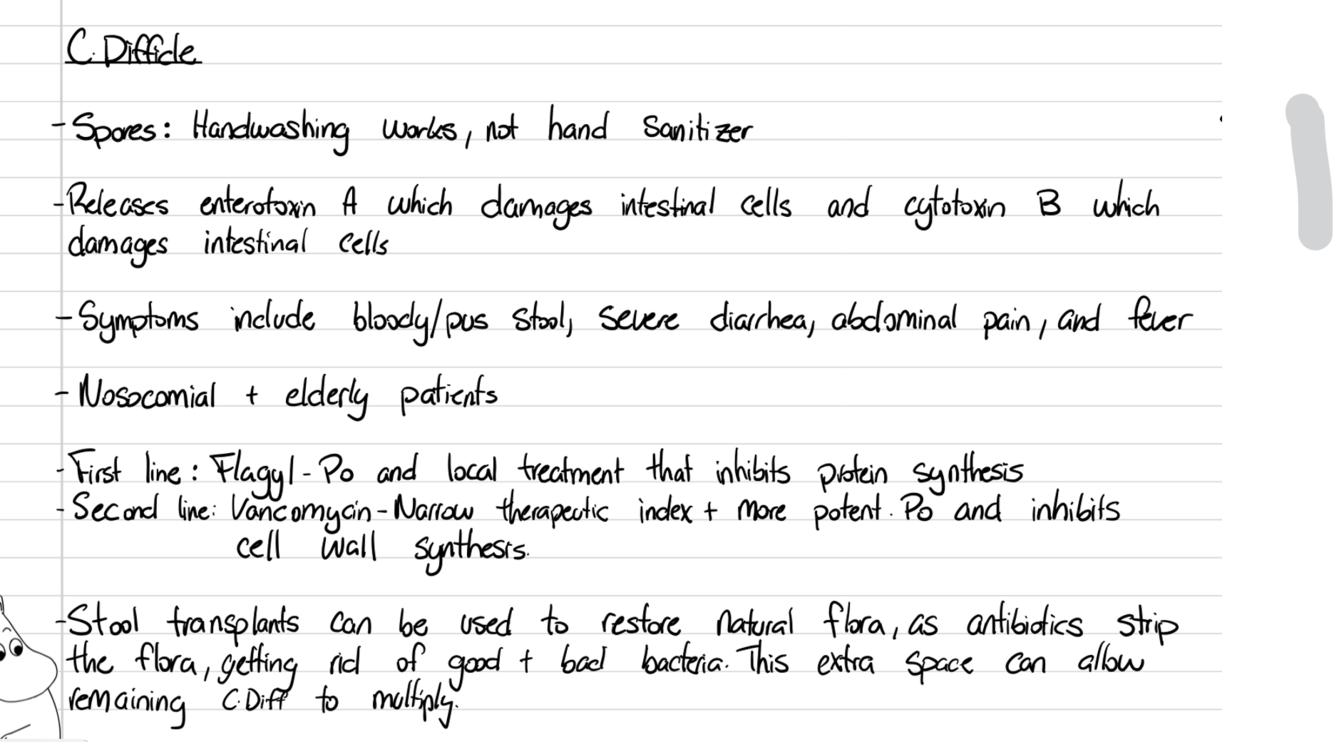 C. Difficle
- Spores: Handwashing works, not hand Sanitizer
- Releases enterotoxin A which damages intestinal cells and cytotoxin B which
damages intestinal cells
- Symptoms include bloody/pus stool, severe diarrhea, abdominal pain, and fever
- Nosocomial + elderly patients
- First line: Flagyl - Po and local treatment that inhibits protein synthesis
- Second line: Vancomycin - Narrow therapeutic index + more potent. Po and inhibits
cell wall synthesis.
- Stool transplants can be used to restore natural flora, as antibiotics strip
the flora, getting rid of good + bad bacteria. This extra space can allow
remaining C.Diff to multiply.